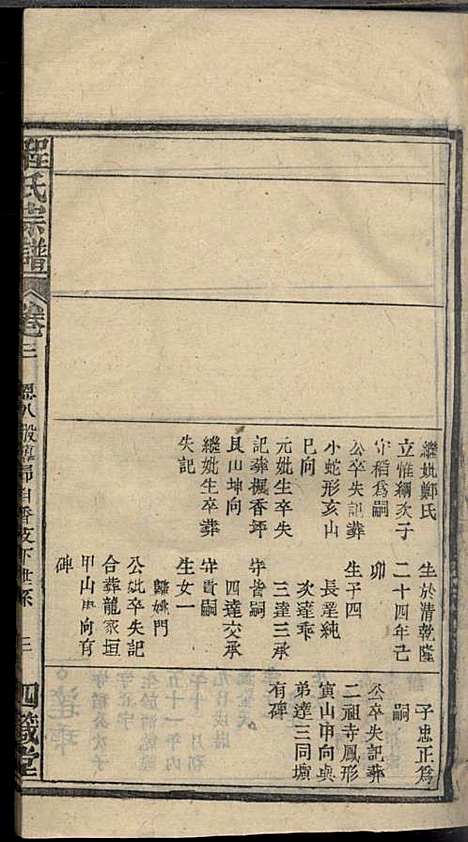 繼妣鄭氏
立惟綱次子
守稻為嗣
公卒失記葬
小蛇形亥山
巳向
元妣生卒失
記葬楓香坪
艮山坤向
繼妣生卒葬
失記
生於清乾隆
二十四年己
卯
生子四
長達純
次達乖
三達三承
守 嗣
四達交承
守貴嗣
生女一
歸姚門
公妣卒失記
合葬龍家垣
甲山庚向有
碑
子忠正為
嗣
公卒失記葬
二祖寺鳳形
寅山申向與
弟達三同墳
有碑
程氏宗譜
卷三
三
四箴堂